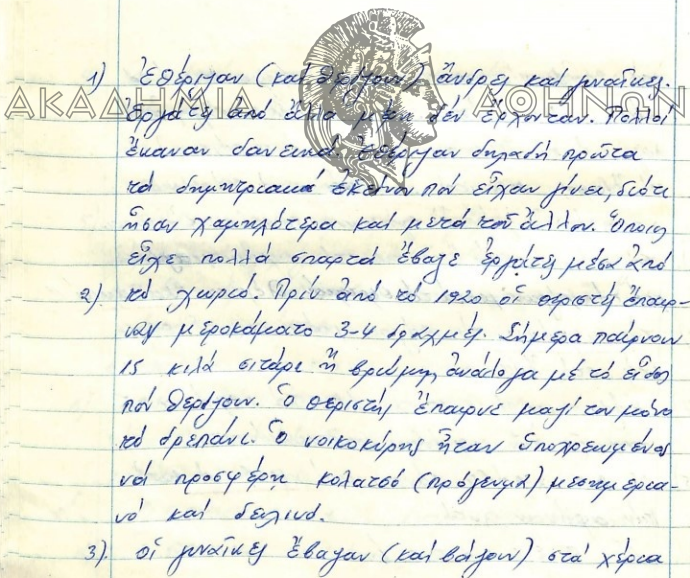 1) Ἐθέριζαν (καί θερίζουν) ἄνδρες καί γυναῖκες.
ΑΚΑΔΗΜΙΑ ΑΘΗΝΩΝ
Ἐργάτες ἀπό ἄλλα μέρη δέν ἔρχονταν. Πολλοί
ἔκαναν δανεικά. Ἐθέριζαν δηλαδή πρῶτα
τά δημητριακά ἐκείνου πού εἶχαν γίνει, διότι
ἦσαν χαμηλότερα καί μετά τοῦ ἄλλου. Ὅποιος
εἶχε πολλά σπαρτά ἔβαζε ἐργάτες μέσα ἀπό
2). τό χωριό. Πρίν ἀπό τό 1920 οἱ θεριστές ἔπαιρ-
ναν μεροκάματο 3-4 δραχμές. Σήμερα παίρνουν
15 κιλά σιτάρι ἤ βρώμης ἀνάλογα μέ τό εἶδος
πού θερίζουν. Ὁ θεριστής ἔπαιρνε μαζί του μόνο
τό δρεπάνι. Ὁ νοικοκύρης ἦταν ὑποχρεωμένος
νά προσφέρη κολατσό (πρόγευμα) μεσημερια-
νό καί δειλινό.
3). οἱ γυναῖκες ἔβαζαν (καί βάζουν) στά χέρια